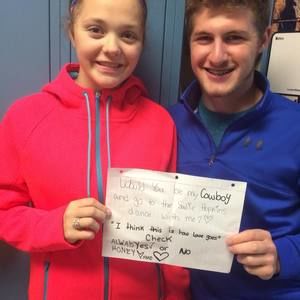 Will You be my Cowboy
and go to the Sadie Hawkins
dance with me?♡
"I think this is how love goes"
Check
ALWAYS
HONEY
Yes✓
or
NO